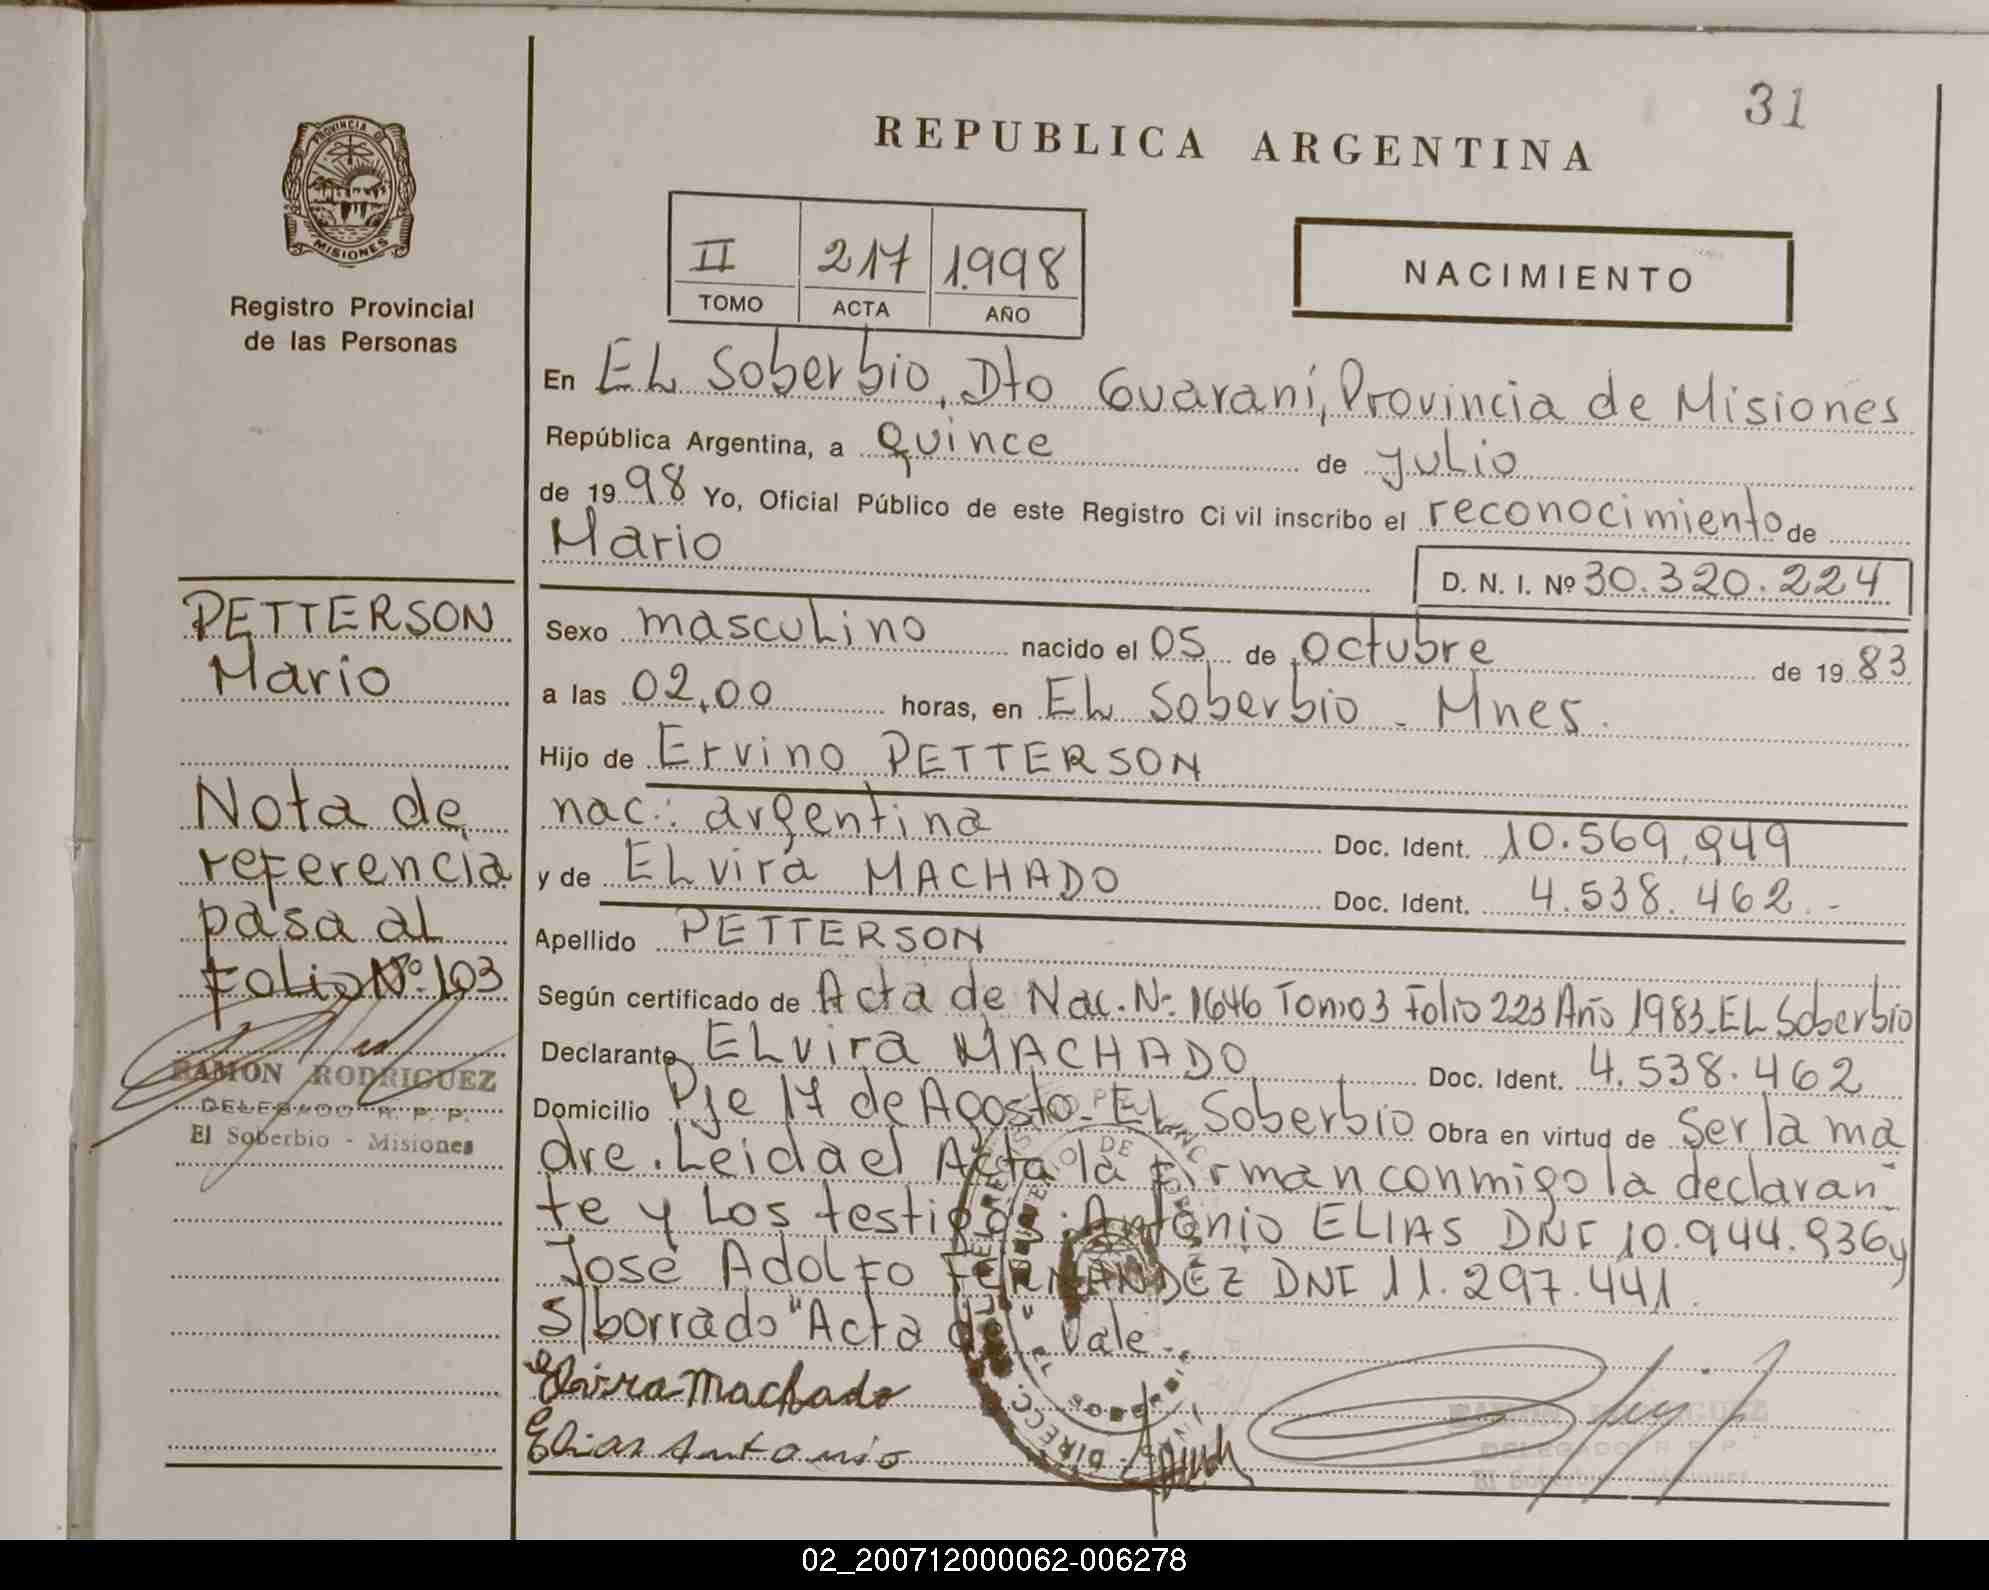 31
REPUBLICA ARGENTINA
PROVINCIA DE
MISIONES
Registro Provincial
de las Personas
II 217 1.998
TOMO ACTA AÑO
NACIMIENTO
En EL Soberbio, Dto Guaraní, Provincia de Misiones
República Argentina, a Quince de julio
de 1998 Yo, Oficial Público de este Registro Civil inscribo el reconocimiento de
Mario
D. N. I. Nº 30.320.224
Sexo masculino nacido el 05 de octubre de 1983
a las 02,00 horas, en EL Soberbio - Mnes.
Hijo de Ervino PETTERSON
nac.: argentina Doc. Ident. 10.569.949
y de ELvira MACHADO Doc. Ident. 4.538.462.-
Apellido PETTERSON
Según certificado de Acta de Nac. Nº 1646 Tomo 3 Folio 223 Año 1983. EL Soberbio
Declarante ELvira MACHADO Doc. Ident. 4.538.462
Domicilio Pje 17 de Agosto - EL Soberbio Obra en virtud de Ser la ma
dre. Leida el Acta la firman conmigo la declaran-
te y Los testigos: Antonio ELIAS DNI 10.944.936 y
José AdoLfo FERNANDEZ DNI 11.297.441.
S/borrado "Acta de" Vale.-
Elvira Machado
Elias Antonio
PETTERSON
Mario
Nota de
referencia
pasa al
FoLio Nº 103
RAMON RODRIGUEZ
DELEGADO R. P. P.
El Soberbio - Misiones
RAMON RODRIGUEZ
DELEGADO R. P. P.
El Soberbio - Misiones
02_200712000062-006278